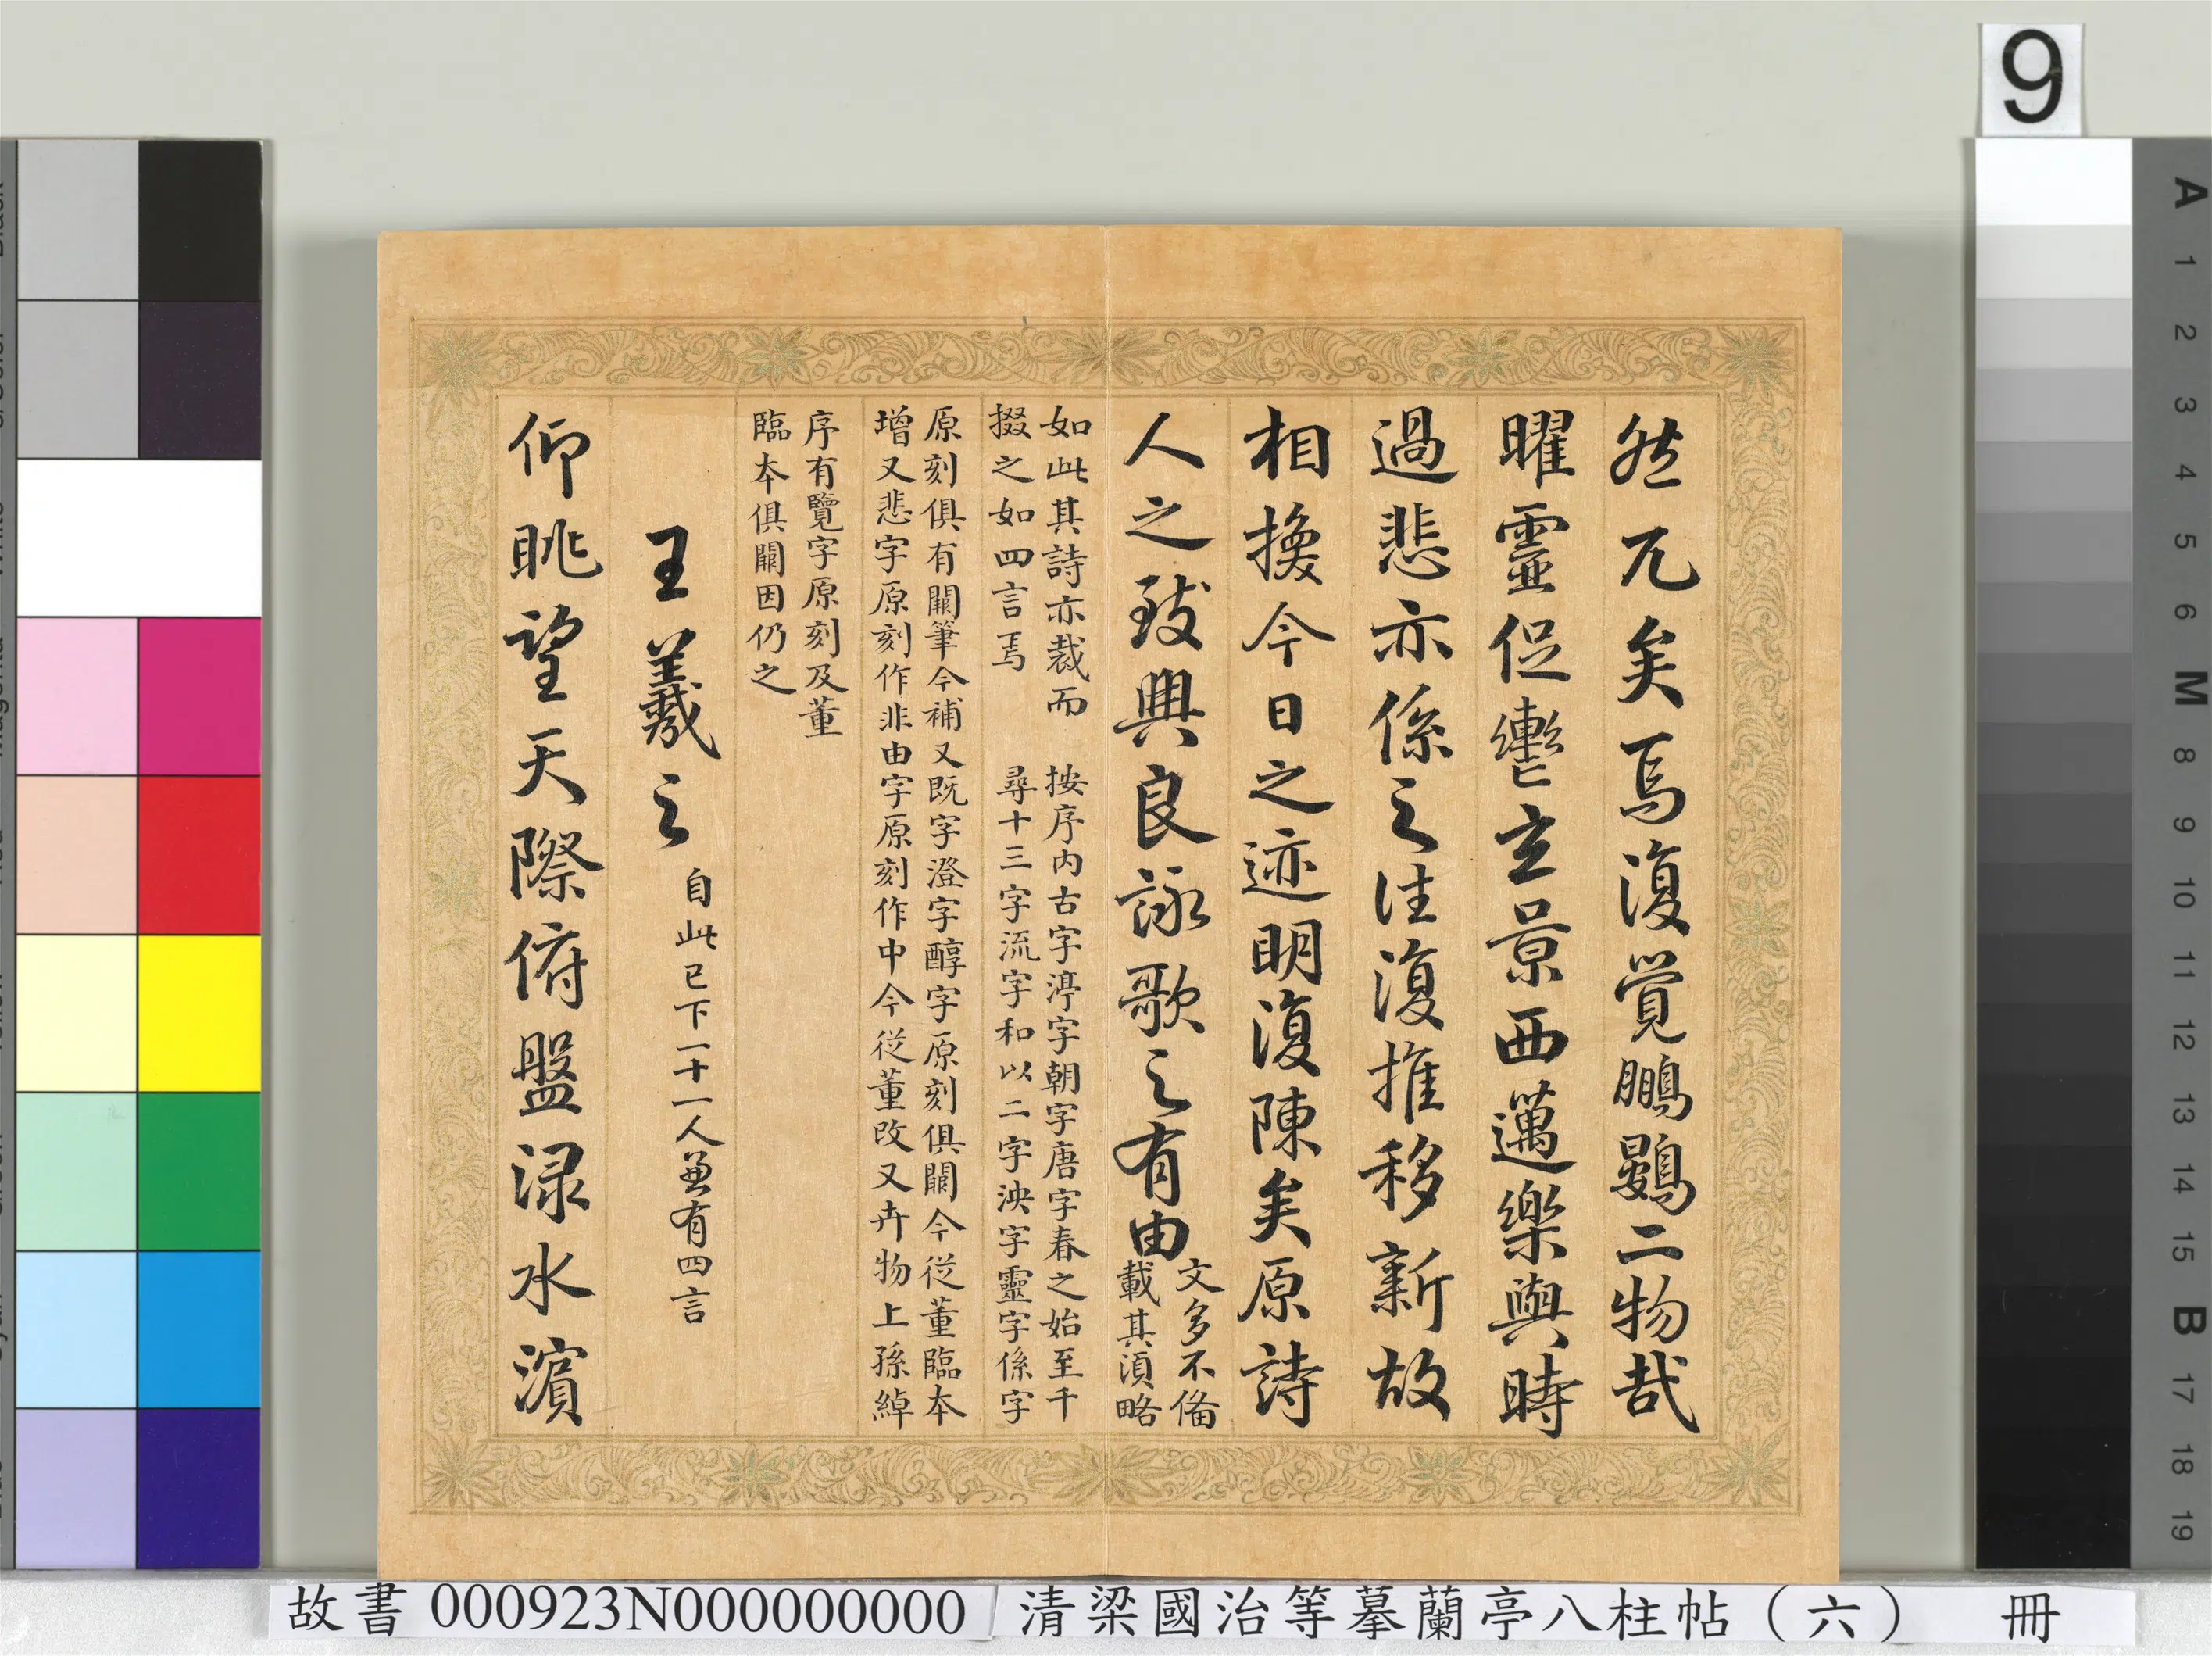 然兀矣焉復覺鵬鷃二物哉
曜靈促轡玄景西邁樂與時
過悲亦係之往復推移新故
相換今日之迹明復陳矣原詩
人之致興良詠歌之有由
文多不備
載其湏略
如此其詩亦裁而
掇之如四言焉
按序内古字渟字朝字唐字春之始至千
尋十三字流字和以二字泱字靈字係字
原刻俱有闕筆今補又既字澄字醇字原刻俱闕今從董臨本
增又悲字原刻作非由字原刻作中今從董改又卉物上孫綽
序有覽字原刻及董
臨本俱闕因仍之
王羲之
自此已下十一人兼有四言
仰眺望天際俯盤渌水濵
9
A
1
2
3
4
5
6
M
8
9
10
11
12
13
14
15
B
17
18
19
故書 000923N000000000
清梁國治等摹蘭亭八柱帖（六） 冊